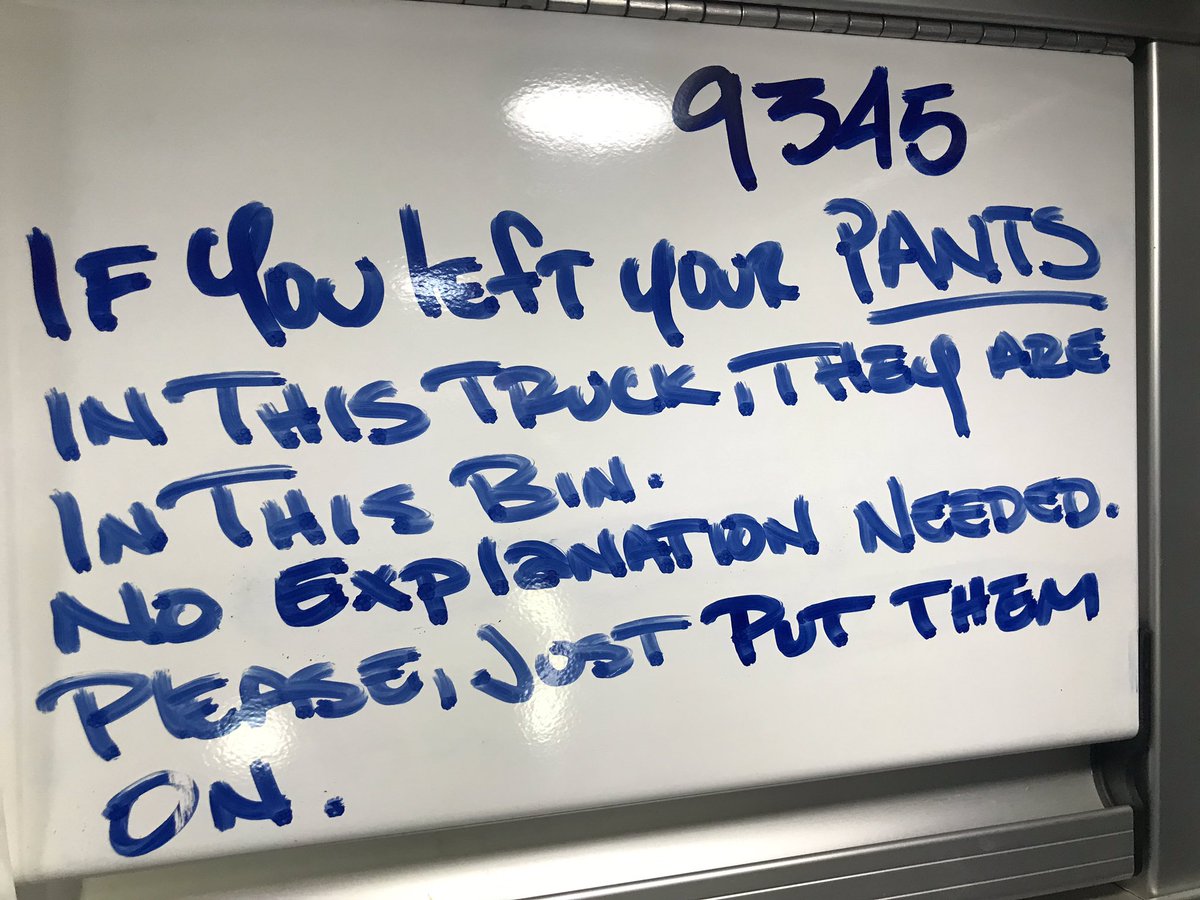 9345
IF YOU LEFT YOUR PANTS
IN THIS TRUCK, THEY ARE
IN THIS BIN.
NO EXPLANATION NEEDED.
PEASE, JUST PUT THEM
ON.